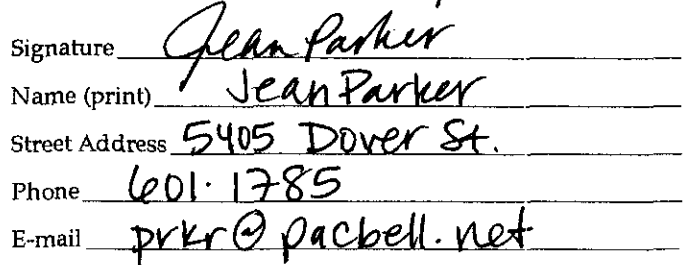 Signature Jean Parker
Name (print) Jean Parker
Street Address 5405 Dover St.
Phone 601. 1785
E-mail prkr@pacbell.net